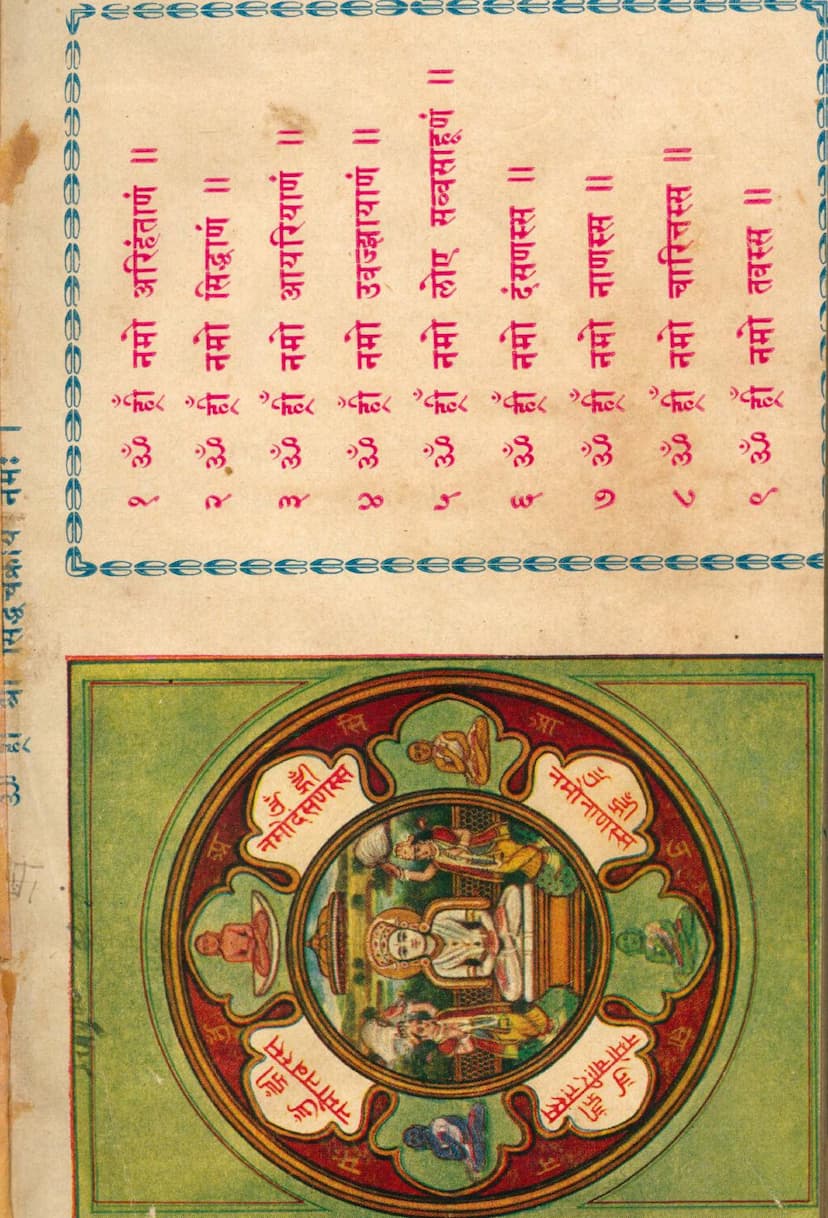 सिद्धचक्राय नमः ।
१ ॐ ह्रीँ नमो अरिहंताणं ॥
२ ॐ ह्रीँ नमो सिद्धाणं ॥
३ ॐ ह्रीँ नमो आयरियाणं ॥
४ ॐ ह्रीँ नमो उवज्झायाणं ॥
५ ॐ ह्रीँ नमो लोए सव्वसाहूणं ॥
६ ॐ ह्रीँ नमो दंसणस्स ॥
७ ॐ ह्रीँ नमो नाणस्स ॥
८ ॐ ह्रीँ नमो चारित्तस्स ॥
९ ॐ ह्रीँ नमो तवस्स ॥
ॐ ह्रीँ
नमोदंसणस्स
ॐ ह्रीँ
नमोनाणस्स
ॐ ह्रीँ
नमोतवस्स
ॐ ह्रीँ
सि